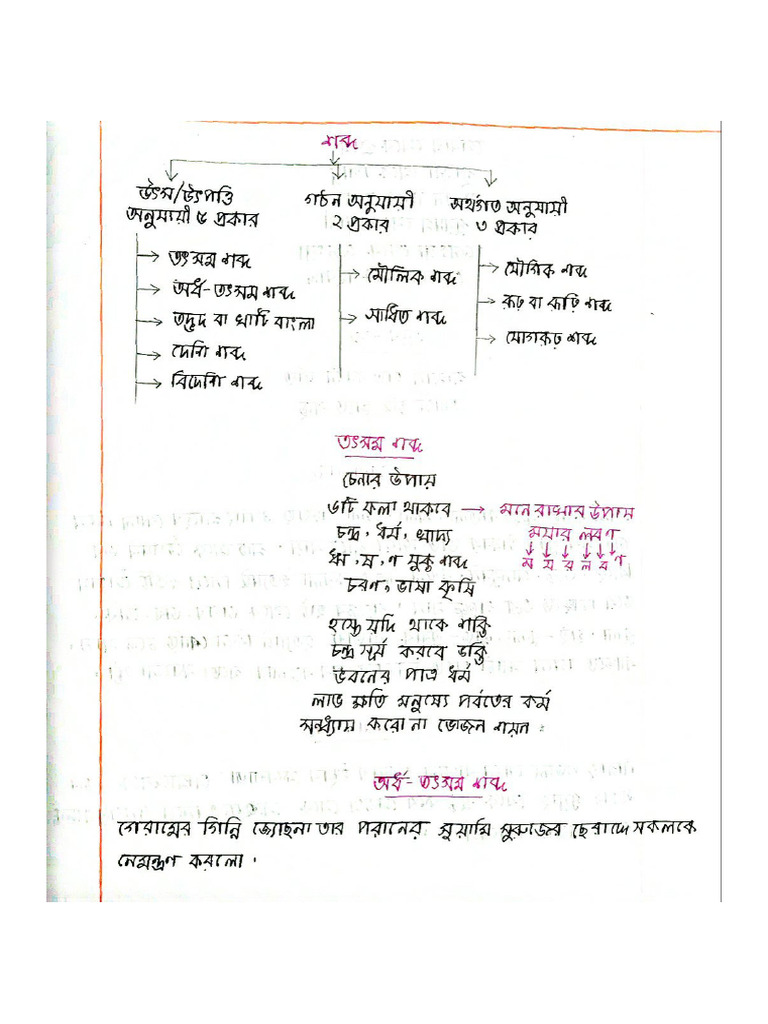 শব্দ
উৎস/উৎপত্তি অনুযায়ী ৫ প্রকার
→ তৎসম শব্দ
→ অর্ধ-তৎসম শব্দ
→ তদ্ভব বা খাটি বাংলা
→ দেশি শব্দ
→ বিদেশি শব্দ
গঠন অনুযায়ী ২ প্রকার
→ মৌলিক শব্দ
→ সাধিত শব্দ
অর্থগত অনুযায়ী ৩ প্রকার
→ যৌগিক শব্দ
→ রূঢ় বা রূঢ়ি শব্দ
→ যোগরূঢ় শব্দ
তৎসম শব্দ
চেনার উপায়
৬টি ফলা থাকবে → মনে রাখার উপায়
চন্দ্র, ধর্ম, খাদ্য ময়ার লবণ
ঋ, ষ, ণ যুক্ত শব্দ ম য র ল ব ণ
চরণ, ভাষা কৃষি
হস্তে যদি থাকে শক্তি
চন্দ্র সূর্য করবে ভক্তি
ভবনের পাত্র ধর্ম
লাভ ক্ষতি মনুষ্যে পর্বতের কর্ম
সন্ধ্যায় করো না ভোজন শয়ন।
অর্ধ-তৎসম শব্দ
গেরামের গিন্নি জ্যোছনা তার পরানের সুয়ামি সুরুজের ছেরাদ্দে সকলকে
নেমন্ত্রণ করলো।